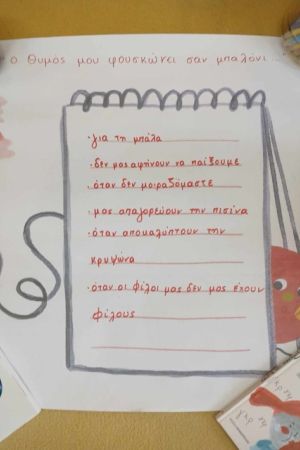 ο θυμός μου φουσκώνει σαν μπαλόνι...
· για τη μπάλα
· δεν μας αφήνουν να παίξουμε
· όταν δεν μοιραζόμαστε
· μας απαγορεύουν την πισίνα
· όταν αποκαλύπτουν την
κρυψώνα
· όταν οι φίλοι μας δεν μας έχουν
φίλους
γκρ